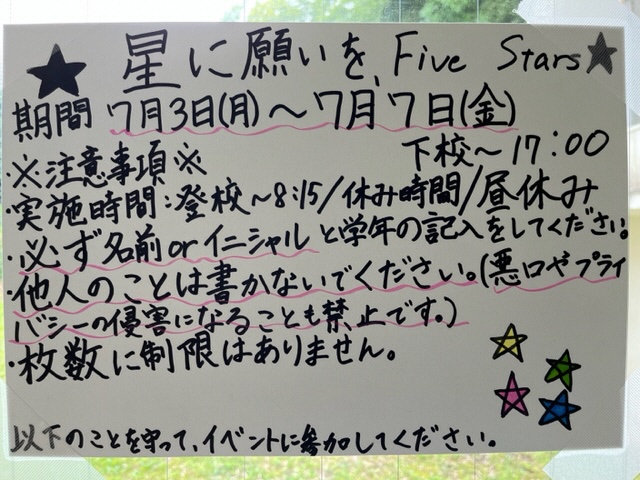 ★星に願いを、Five Stars★
期間 7月3日(月)〜7月7日(金)
※注意事項※ 下校〜17:00
・実施時間:登校〜8:15/休み時間/昼休み
・必ず名前orイニシャルと学年の記入をしてください。
・他人のことは書かないでください。(悪口やプライ
バシーの侵害になることも禁止です。)
・枚数に制限はありません。
以下のことを守って、イベントに参加してください。